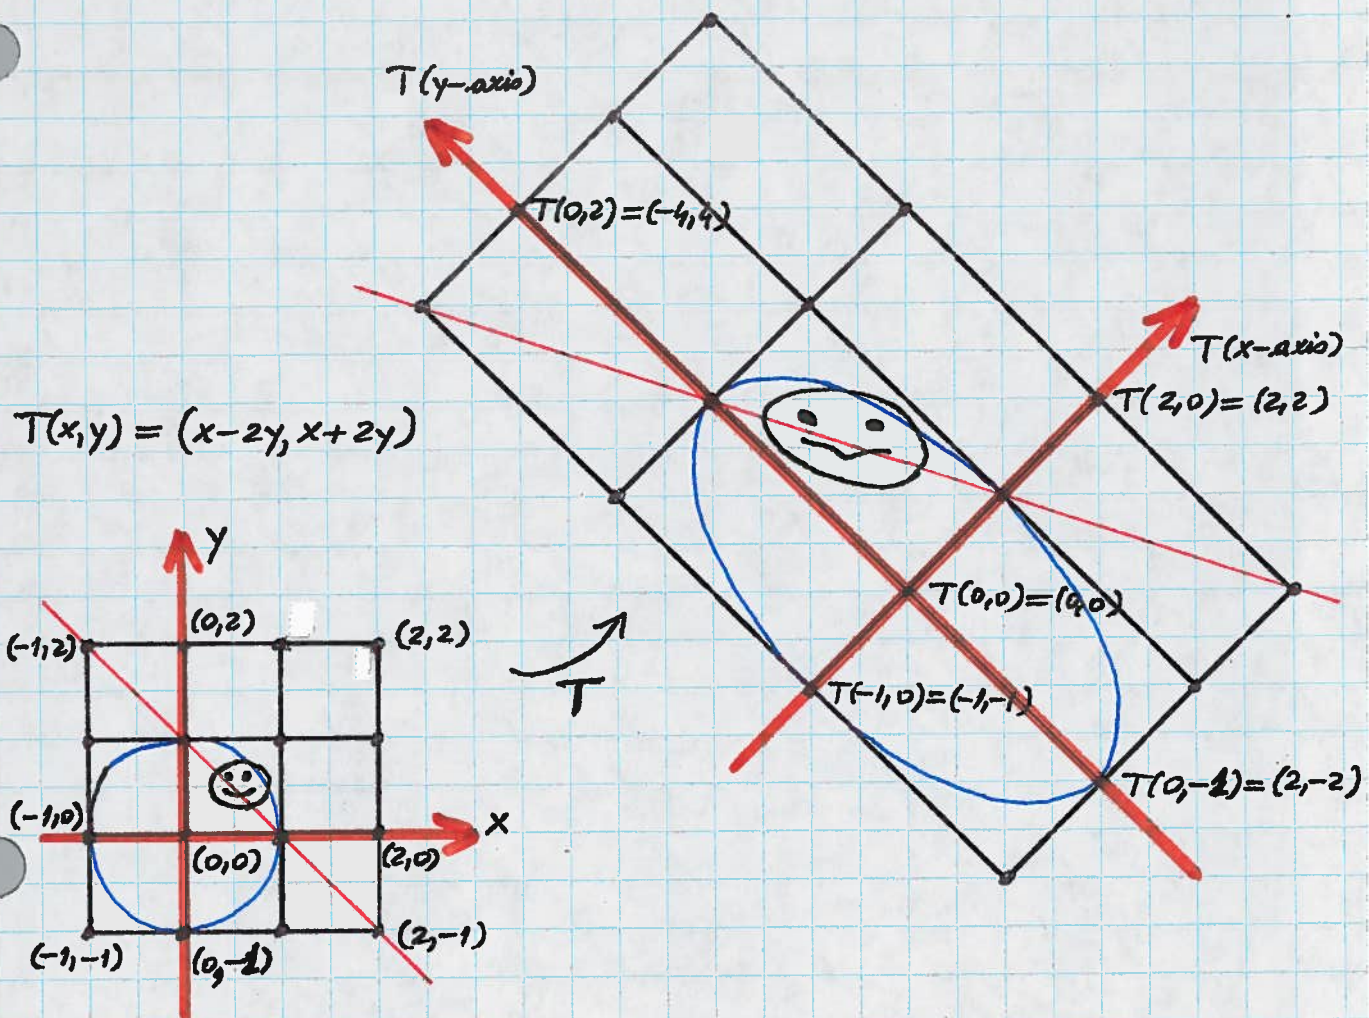 T(y-axis)
T(0,2)=(-4,4)
T(x-axis)
T(2,0)=(2,2)
T(x,y) = (x-2y, x+2y)
y
(0,2)
(-1,2)
(2,2)
T(0,0)=(0,0)
T
T(-1,0)=(-1,-1)
T(0,-1)=(2,-2)
(-1,0)
x
(0,0)
(2,0)
(2,-1)
(-1,-1)
(0,-1)